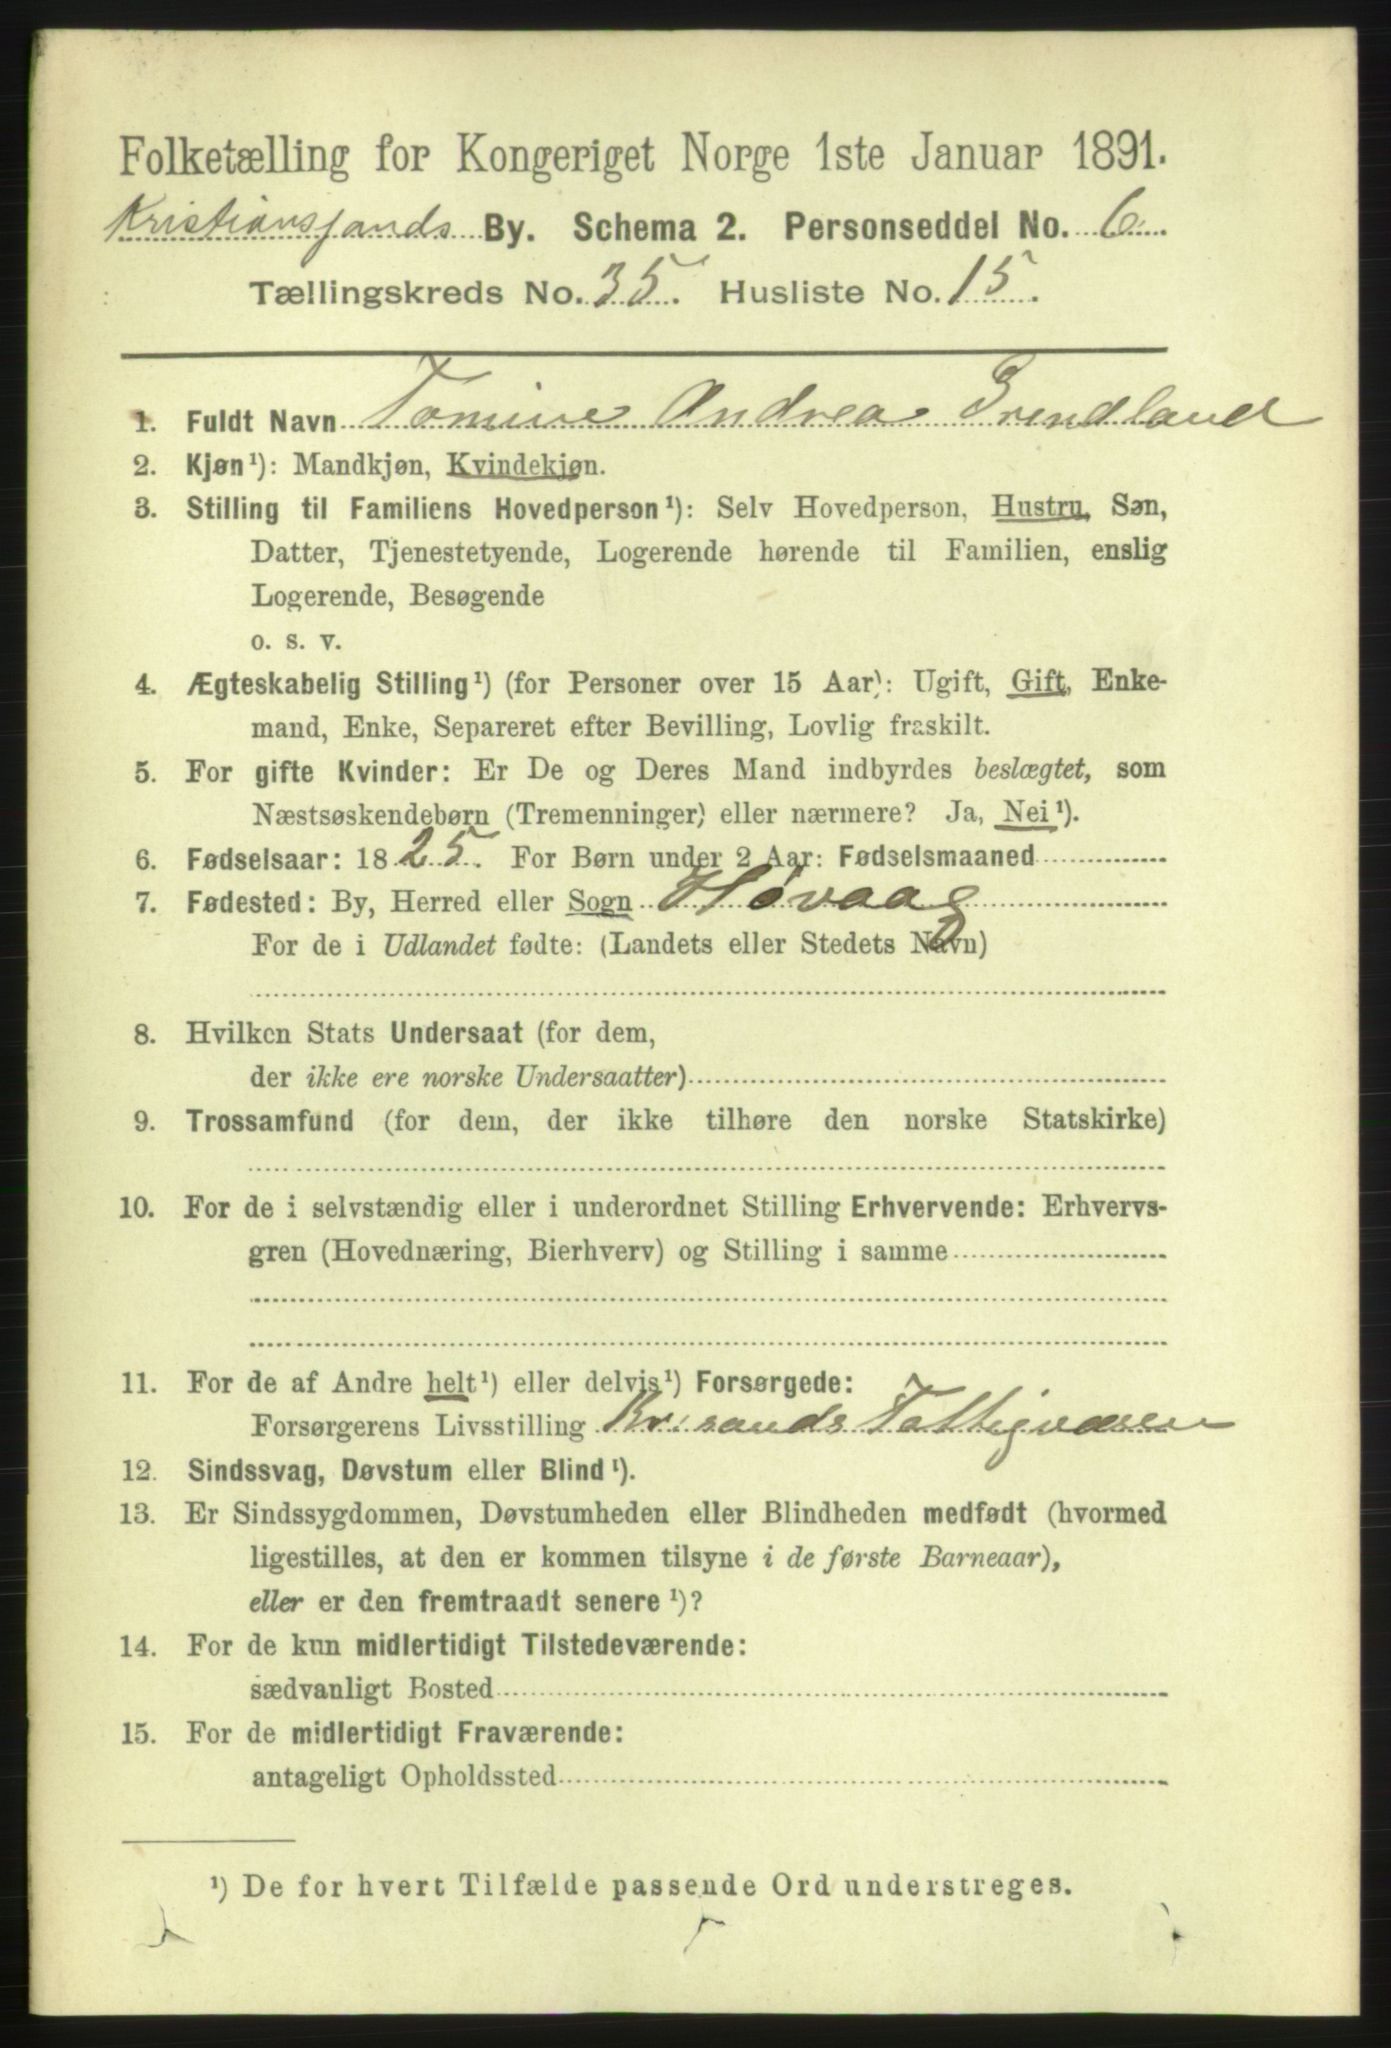 Folketælling for Kongeriget Norge 1ste Januar 1891.
Kristianssands By. Schema 2. Personseddel No. 6.
Tællingskreds No. 35. Husliste No. 15.
1. Fuldt Navn Tomine Andrea Grendland
2. Kjøn¹): Mandkjøn, Kvindekjøn.
3. Stilling til Familiens Hovedperson¹): Selv Hovedperson, Hustru, Søn,
Datter, Tjenestetyende, Logerende hørende til Familien, enslig
Logerende, Besøgende
o. s. v.
4. Ægteskabelig Stilling¹) (for Personer over 15 Aar): Ugift, Gift, Enke-
mand, Enke, Separeret efter Bevilling, Lovlig fraskilt.
5. For gifte Kvinder: Er De og Deres Mand indbyrdes beslægtet, som
Næstsøskendebørn (Tremenninger) eller nærmere? Ja, Nei¹).
6. Fødselsaar: 1825. For Børn under 2 Aar: Fødselsmaaned
7. Fødested: By, Herred eller Sogn Høvaag
For de i Udlandet fødte: (Landets eller Stedets Navn)
8. Hvilken Stats Undersaat (for dem,
der ikke ere norske Undersaatter)
9. Trossamfund (for dem, der ikke tilhøre den norske Statskirke)
10. For de i selvstændig eller i underordnet Stilling Erhvervende: Erhvervs-
gren (Hovednæring, Bierhverv) og Stilling i samme
11. For de af Andre helt¹) eller delvis¹) Forsørgede:
Forsørgerens Livsstilling Kr.sands Fattigvæsen
12. Sindssvag, Døvstum eller Blind¹).
13. Er Sindssygdommen, Døvstumheden eller Blindheden medfødt (hvormed
ligestilles, at den er kommen tilsyne i de første Barneaar),
eller er den fremtraadt senere¹)?
14. For de kun midlertidigt Tilstedeværende:
sædvanligt Bosted
15. For de midlertidigt Fraværende:
antageligt Opholdssted
¹) De for hvert Tilfælde passende Ord understreges.